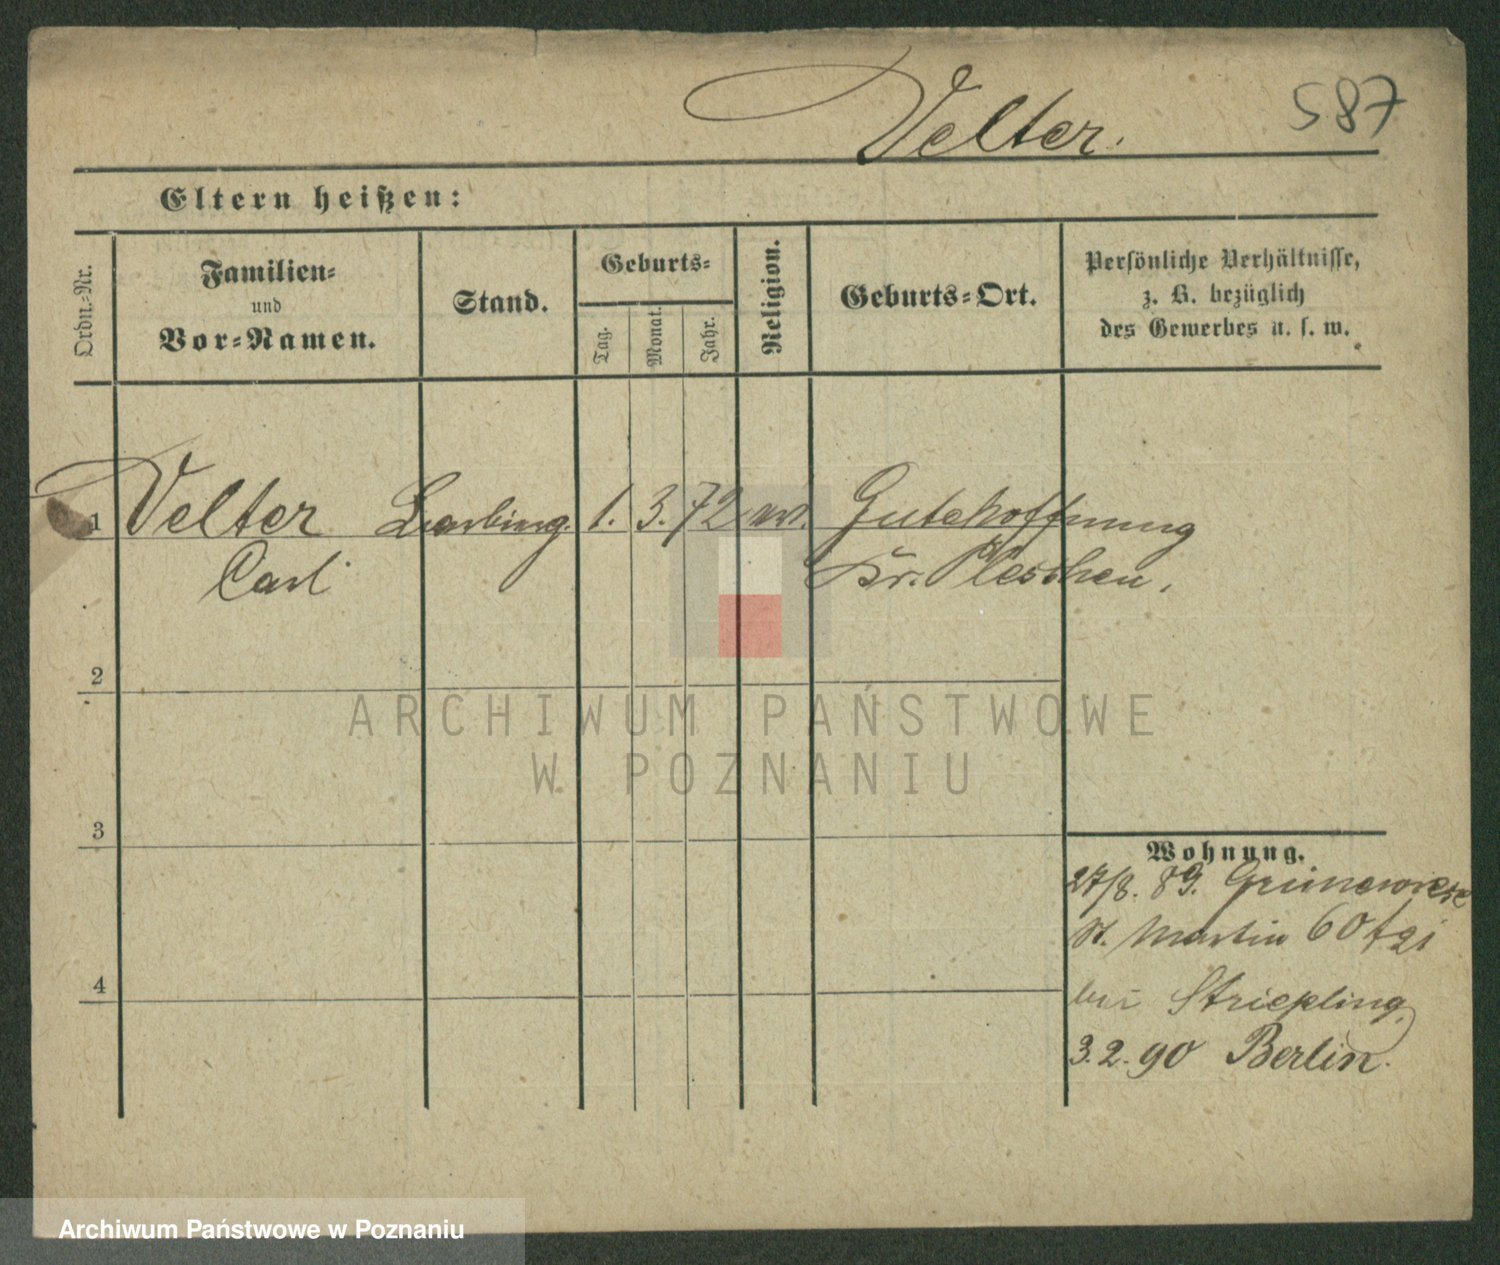 Velter.
587
Eltern heißen:
Ordn.-Nr.
Familien-
und
Vor-Namen.
Stand.
Geburts-
Tag.
Monat.
Jahr.
Religion.
Geburts-Ort.
Persönliche Verhältnisse,
z. B. bezüglich
des Gewerbes u. s. w.
1 Velter 1. 3. 72 Gutehoffnung
Carl Kr. Pleschen.
2
ARCHIWUM PAŃSTWOWE
W POZNANIU
3
Wohnung.
27/8. 89.
St. Martin 60
4
bei Striepling,
3.2.90 Berlin.
Archiwum Państwowe w Poznaniu